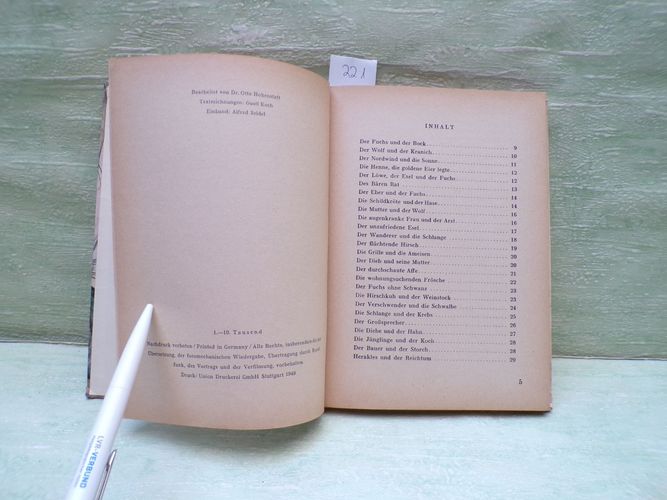 221
Bearbeitet von Dr. Otto Hohenstatt
Textzeichnungen: Gusti Koch
Einband: Alfred Seidel
1.—10. Tausend
Nachdruck verboten / Printed in Germany / Alle Rechte, insbesondere die der
Übersetzung, der fotomechanischen Wiedergabe, Übertragung durch Rund-
funk, des Vortrags und der Verfilmung, vorbehalten.
Druck: Union Druckerei GmbH Stuttgart 1949
INHALT
Der Fuchs und der Bock 9
Der Wolf und der Kranich 10
Der Nordwind und die Sonne 11
Die Henne, die goldene Eier legte 12
Der Löwe, der Esel und der Fuchs 12
Des Bären Rat 13
Der Eber und der Fuchs 14
Die Schildkröte und der Hase 14
Die Mutter und der Wolf 16
Die augenkranke Frau und der Arzt 16
Der unzufriedene Esel 17
Der Wanderer und die Schlange 18
Der flüchtende Hirsch 19
Die Grille und die Ameisen 20
Der Dieb und seine Mutter 20
Der durchschaute Affe 21
Die wohnungsuchenden Frösche 22
Der Fuchs ohne Schwanz 23
Die Hirschkuh und der Weinstock 23
Der Verschwender und die Schwalbe 24
Die Schlange und der Krebs 25
Der Großsprecher 26
Die Diebe und der Hahn 27
Die Jünglinge und der Koch 28
Der Bauer und der Storch 28
Herakles und der Reichtum 29
5
LVR-VERBUND